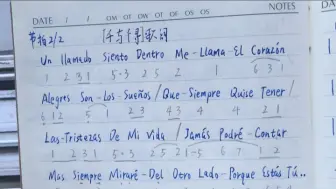 DATE / / OM OT OW OT OF OS OS NOTES
节拍2/2 「千与千寻」歌词
Un Llamado Siento Dentro Me-Llama El Corazón
1 1 2 3 1 5·3 2 5 2 1 6 3 1
Alegres Son-Los-Sueños/Que-Siempre Quise Tener/
6 1 2 5 1 2 3 4 3 4 4 2 1
Las-Tristezas De Mi Vida/Jamás Podré-Contar
1 1 2 3 1 5·3 2 5 2 1-5 6 7 1 2
Mas Siempre Miraré-Del Otro Lado-Porque Estás Tú..